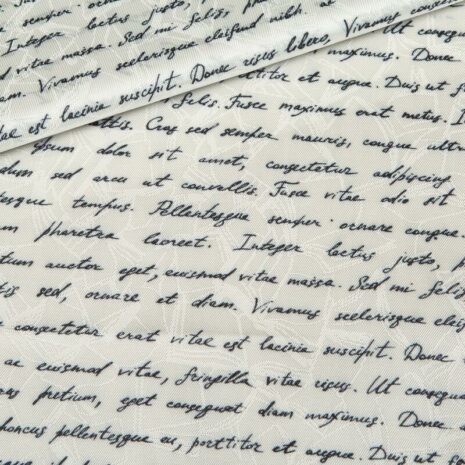 Integer lectus justo,
vitae massa. Sed mi felis,
am. Vivamus scelerisque eleifend nibh.
est lacinia suscipit. Donec risus libero, Vivamus
Ut
maximus. Donec
porttitor et augue. Duis ut
felis. Fusce maximus erat metus.
Cras sed semper mauris, congue
ipsum dolor sit amet, consectetur adipiscing
sed arcu ut convallis. Fusce vitae odio sit
tempus. Pellentesque semper ornare congue.
pharetra laoreet. Integer lectus justo,
auctor eget, euismod vitae massa. Sed mi felis
sed, ornare et diam. Vivamus scelerisque
consectetur erat vitae est lacinia suscipit. Donec
ac euismod vitae, fringilla vitae risus. Ut
pretium, eget consequat diam maximus. Donec
pellentesque eu, porttitor et augue. Duis ut